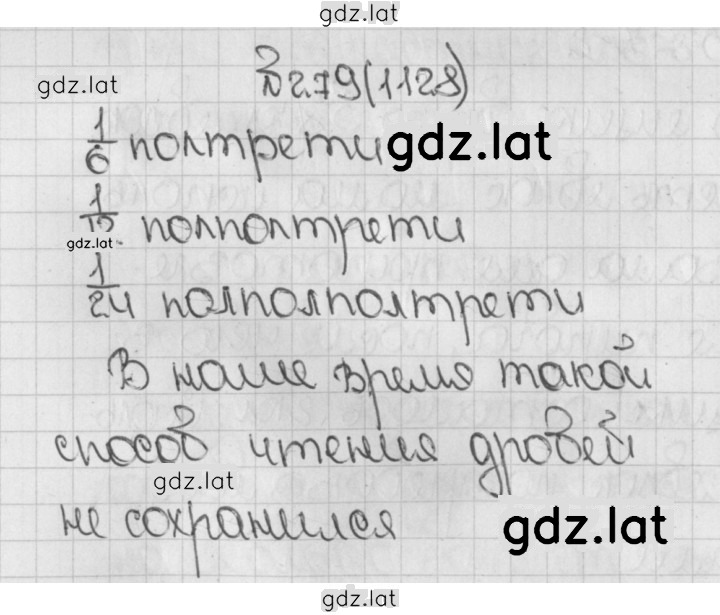 gdz.lat
№279(1128)
gdz.lat
1/6 полтрети gdz.lat
1/12 полполтрети
gdz.lat
1/24 полполполтрети
В наше время такой
способ чтения дробей
gdz.lat
не сохранился gdz.lat
gdz.lat